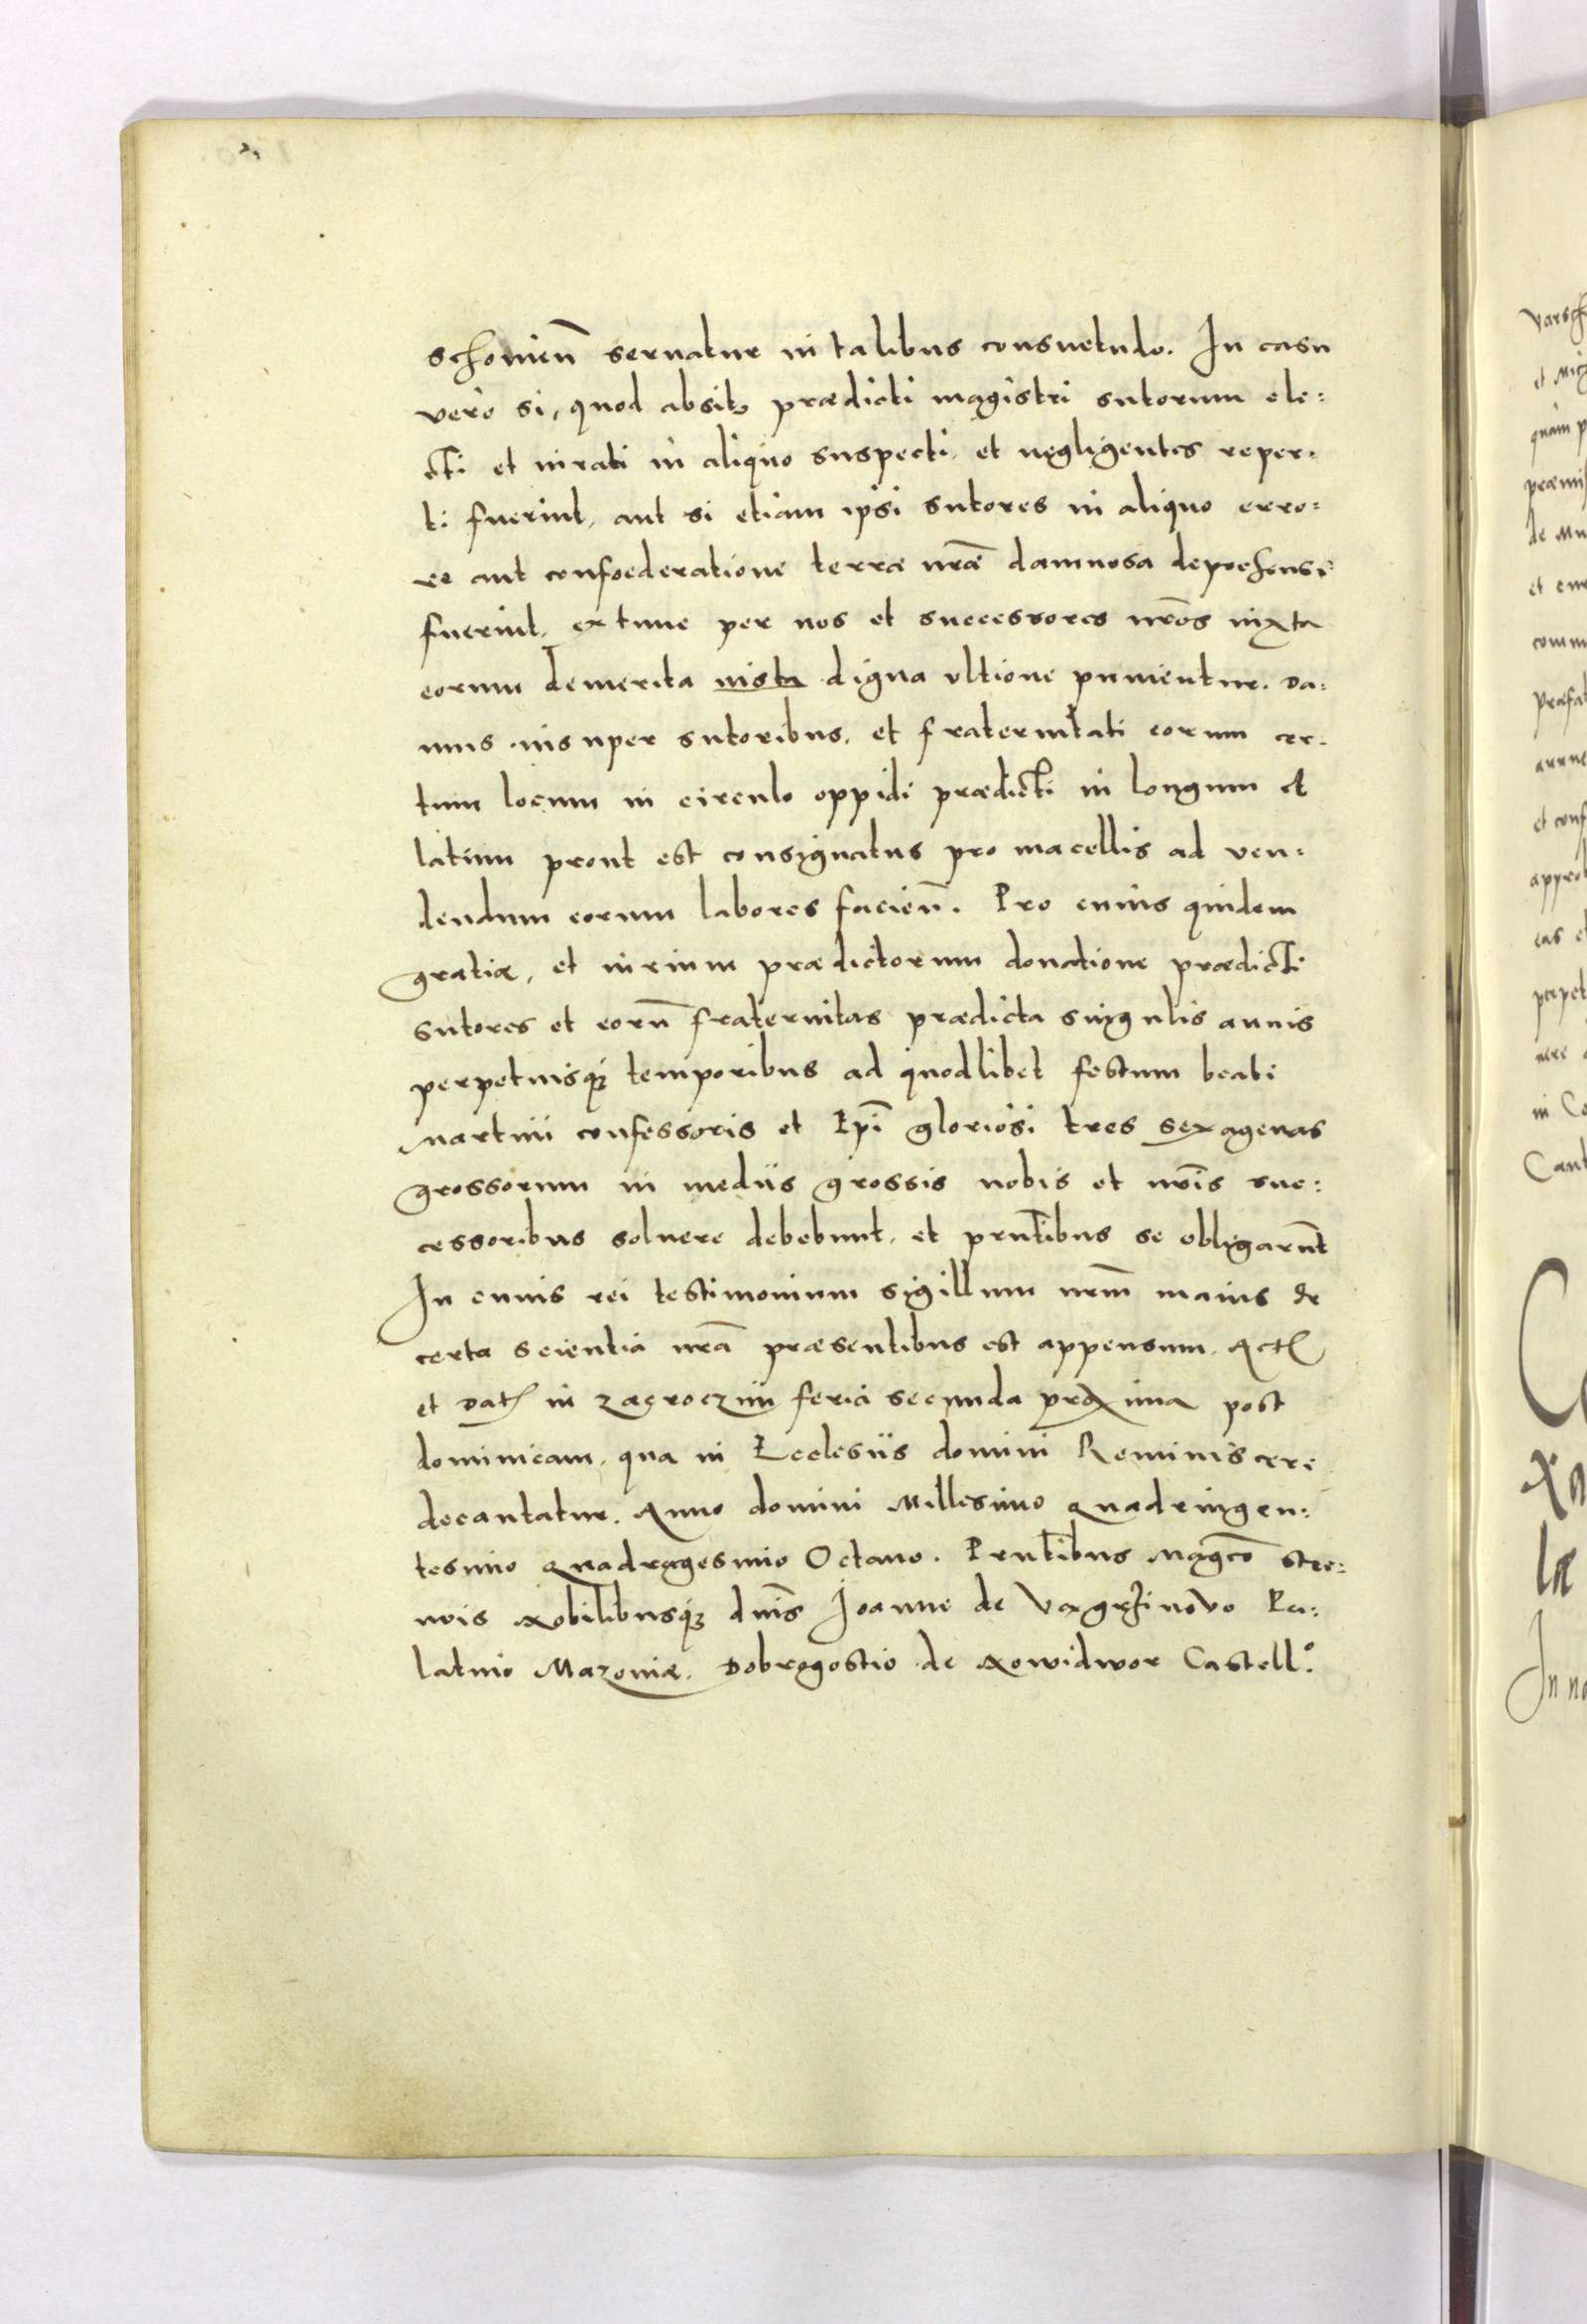 schouień seruatur in talibus consuetudo. In casu
vero si, quod absit, prædicti magistri sutorum ele:
cti et iurati in aliquo suspecti, et negligentes reper:
ti fuerint, aut si etiam ipsi sutores in aliquo erro:
re aut confoederatione terræ nrãe damnosa depræhensi
fuerint, extunc per nos et successores nrõs iuxta
eorum demerita iusta digna ultione punientur. Da:
mus insuper sutoribus, et fraternitati eorum cer:
tum locum in circulo oppidi prædicti in longum et
latum prout est consignatus pro macellis ad ven:
dendum eorum labores facień. Pro cuius quidem
gratiæ, et iurium prædictorum donatione prædicti
sutores et eorũ fraternitas prædicta singulis annis
perpetuisq; temporibus ad quodlibet festum beati
Martini confessoris et Epĩ gloriosi tres sexagenas
grossorum in mediis grossis nobis et nrĩs suc:
cessoribus soluere debebunt, et prñtibus se obligarũt
In cuius rei testimonium sigillum nrũm maius de
certa scientia nrã præsentibus est appensum. Act
et Dat in Zacroczim feria secunda proxima post
dominicam, qua in Ecclesiis domini Reminiscere
decantatur. Anno domini Millesimo Quadringen:
tesimo Quadragesimo Octauo. Prñtibus Magco stre:
nuis Nobilibusq; dnĩs Joanne de Vazgrzinovo Pa:
latino Mazoviæ. Dobrogostio de Nowidwor Castell.º